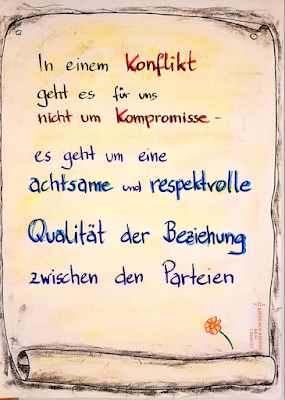 In einem Konflikt
geht es für uns
nicht um Kompromisse -
es geht um eine
achtsame und respektvolle
Qualität der Beziehung
zwischen den Parteien